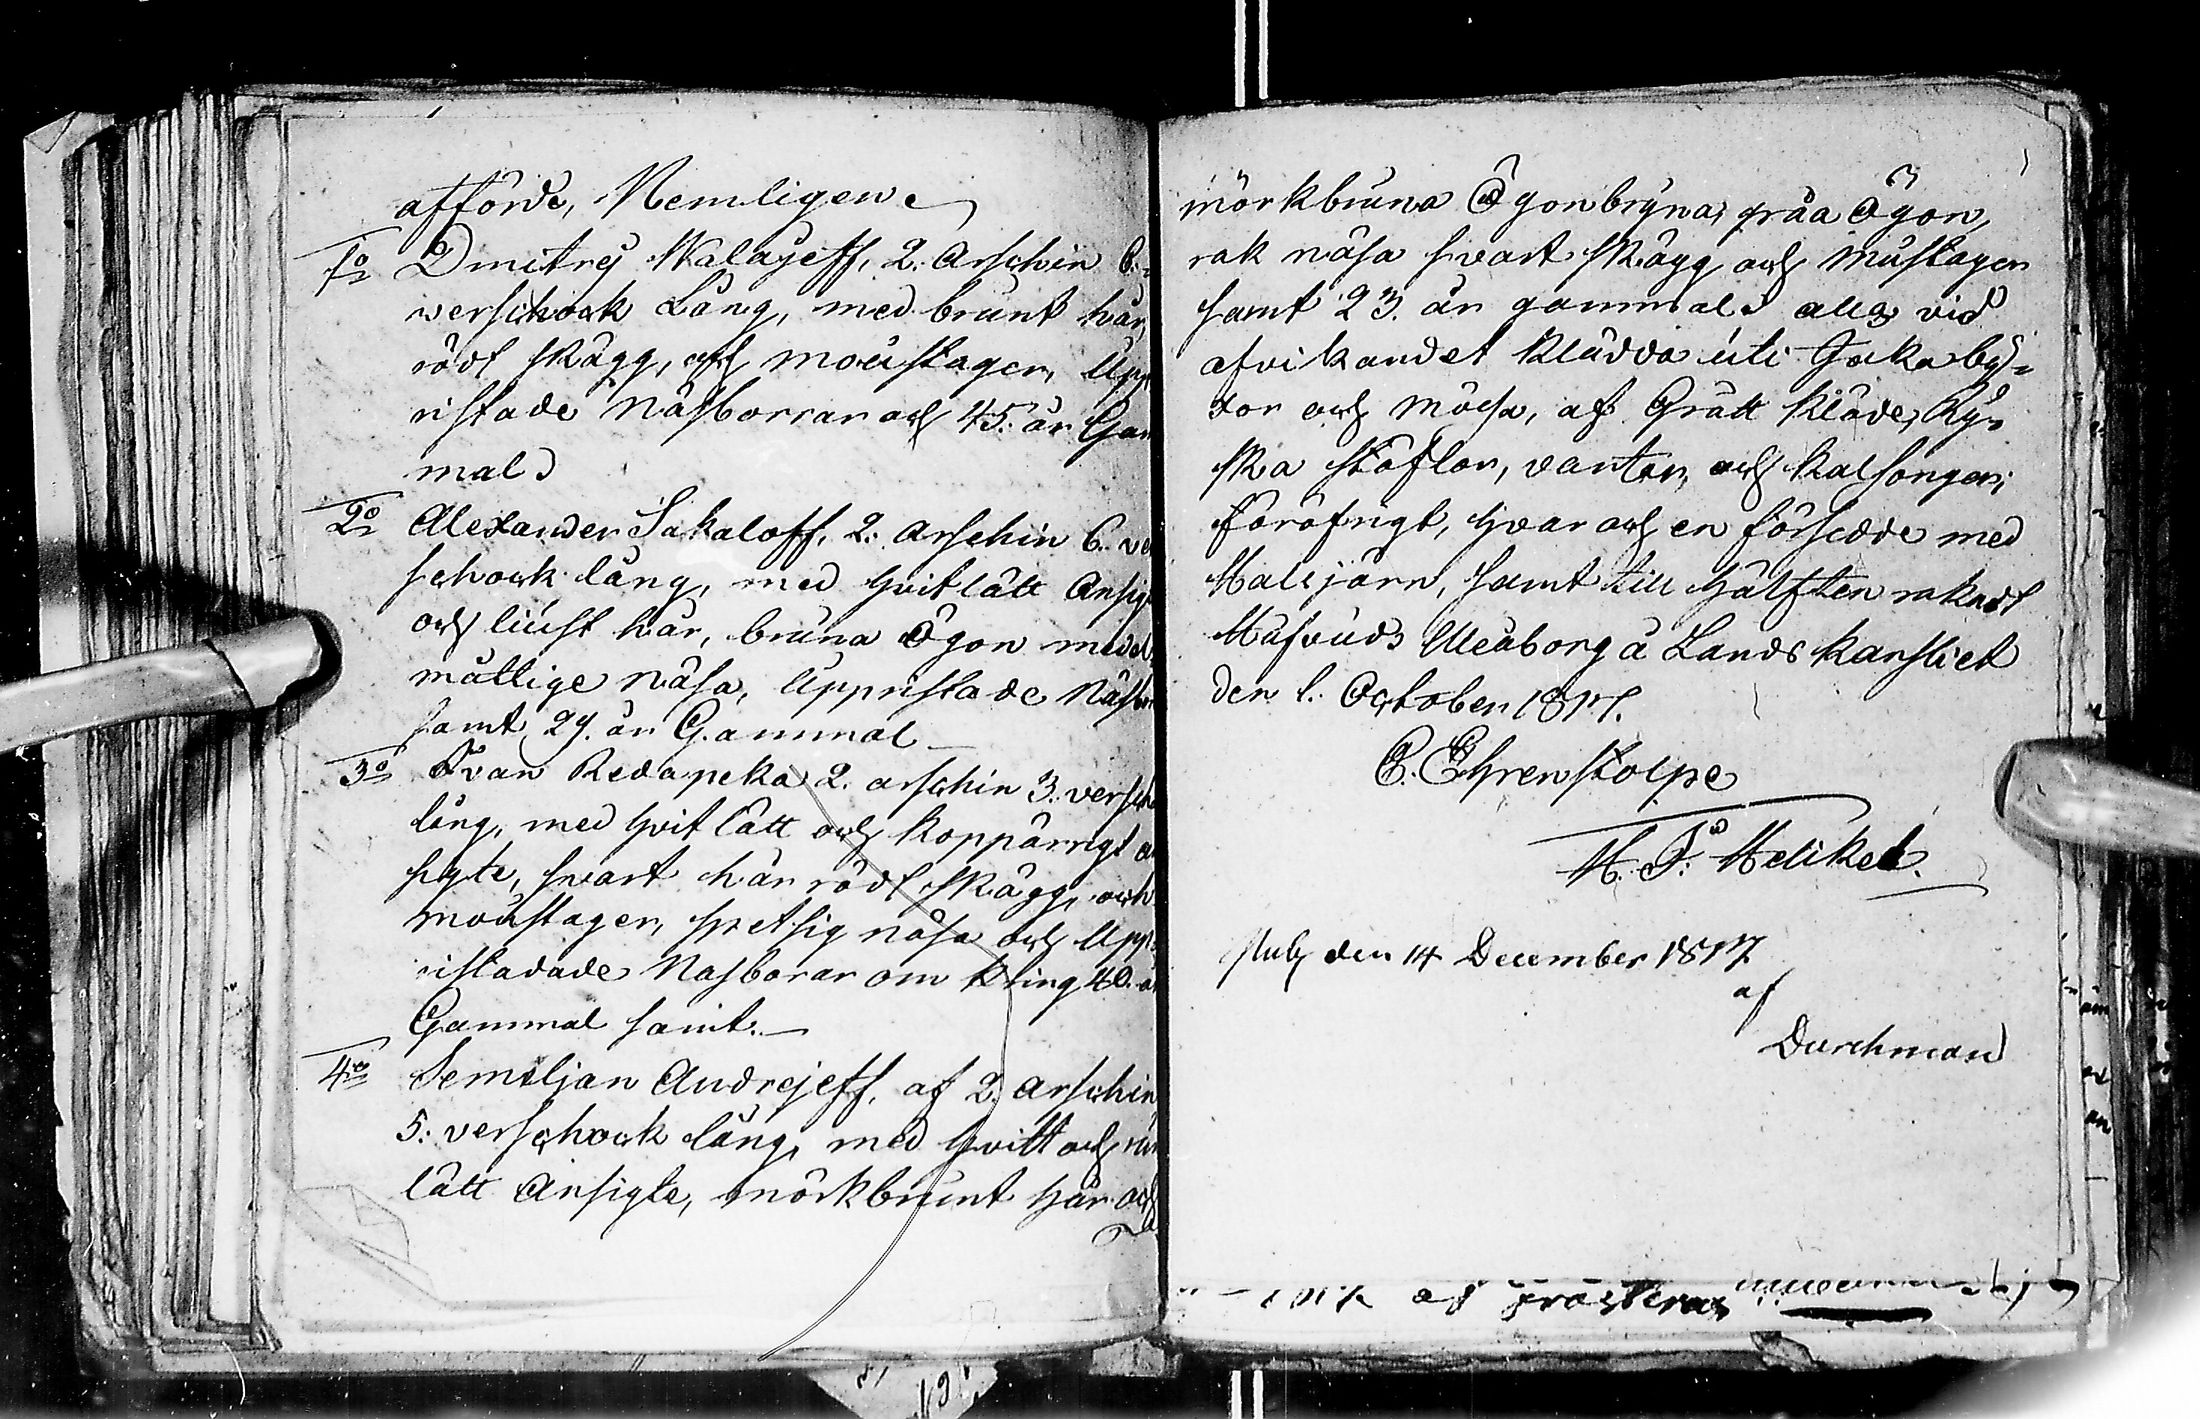 afförde, Nemligen
1o Dmitrej Malajeff, 2. Arschin 6.
verschock Lång, med brunt hår,
rödt skägg, och moustager, Upp
ristade Näsborrar och 45. år Gam
mal
2o Alexander Sakaloff, 2. Arschin 6. ver
schock lång, med hvitlätt Ansig
och liust hår, bruna Ögon medel
måttige näsa, Uppristade Näsbo
samt 29. år Gammal
3o Ivan Redapeka 2. arschin 3. versch
lång, med hvitlätt och koppärrigt a
sigte, svart hår rödt skägg, och
moustager, spetsig näsa och Upp
ristadade Nasborar omkring 40. å
Gammal samt.
4o Semiljan Andrejeff, af 2. Arschin
5. verschock lång, med hvitt och run
lätt Ansigte, mörkbrunt hår och
mörkbruna Ögonbryna, gråa Ögon,
rak näsa svart skägg och mustager
samt 23. år gammal alla vid
afvikandet klädda uti Jacka by-
xor och mössa, af Grått kläde, Ry-
ska stöflor, vantor, och kalsonger;
föröfrigt, hvar och en försedde med
Halsjärn, samt till hälften rakadt
Hufvud Uleåborg å Lands kansliet
den 1. October 1817.
C. Ehrenstolpe
M. F. Heliker.
Publ den 14 December 1817
af
Durchman
af